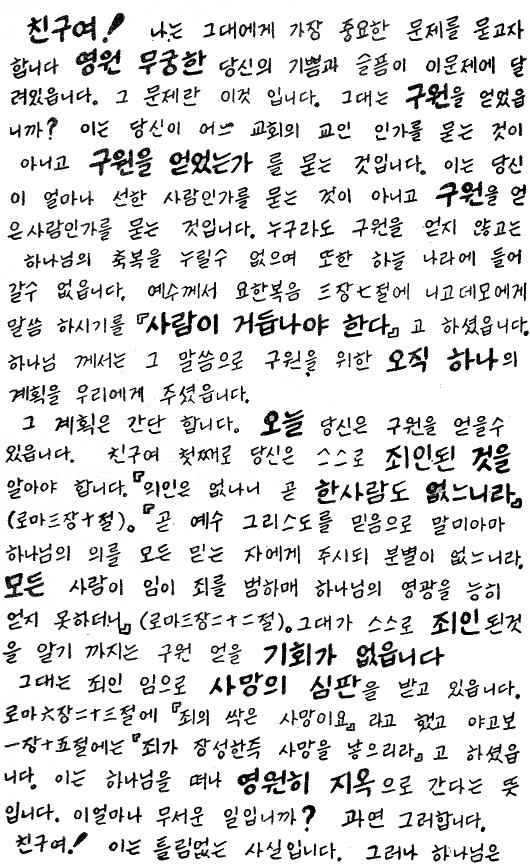 친구여! 나는 그대에게 가장 중요한 문제를 묻고자
합니다 영원 무궁한 당신의 기쁨과 슬픔이 이문제에 달
려있읍니다. 그 문제란 이것 입니다. 그대는 구원을 얻었읍
니까? 이는 당신이 어느 교회의 교인 인가를 묻는 것이
아니고 구원을 얻었는가 를 묻는 것입니다. 이는 당신
이 얼마나 선한 사람인가를 묻는 것이 아니고 구원을 얻
은사람인가를 묻는 것입니다. 누구라도 구원을 얻지 않고는
하나님의 축복을 누릴수 없으며 또한 하늘 나라에 들어
갈수 없읍니다. 예수께서 요한복음 三장七절에 니고데모에게
말씀 하시기를 『사람이 거듭나야 한다』고 하셨읍니다.
하나님 께서는 그 말씀으로 구원을 위한 오직 하나의
계획을 우리에게 주셨읍니다.
그 계획은 간단 합니다. 오늘 당신은 구원을 얻을수
있읍니다. 친구여 첫째로 당신은 스스로 죄인된 것을
알아야 합니다. 『의인은 없나니 곧 한사람도 없느니라』
(로마三장十절)。『곧 예수 그리스도를 믿음으로 말미아마
하나님의 의를 모든 믿는 자에게 주시되 분별이 없느니라.
모든 사람이 임이 죄를 범하매 하나님의 영광을 능히
얻지 못하더니』(로마三장二十二절)。그대가 스스로 죄인된것
을 알기 까지는 구원 얻을 기회가 없읍니다
그대는 죄인 임으로 사망의 심판을 받고 있읍니다.
로마六장二十三절에 『죄의 싹은 사망이요』라고 했고 야고보
一장十五절에는 『죄가 장성한즉 사망을 낳으리라』고 하셨읍
니다. 이는 하나님을 떠나 영원히 지옥으로 간다는 뜻
입니다. 이얼마나 무서운 일입니까? 과연 그러합니다.
친구여! 이는 틀림없는 사실입니다. 그러나 하나님은